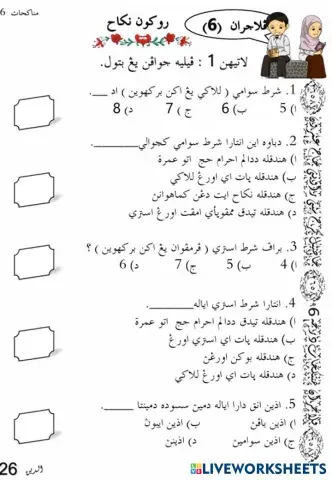 مناكحات 6
ڤلاجران (6) روكون نكاح
لاتيهن 1 : ڤيليه جواڤن يڠ بتول.
1. شرط سوامي ( للاكي يڠ اكن بركهوين ) اد ___.
ا) 5 ب) 6 ج) 7 د) 8
2. دباوه اين انتارا شرط سوامي كچوالي_______.
ا) هندقله ددالم احرام حج اتو عمرة
ب) هندقله ڤات اي اورڠ للاكي
ج) هندقله نكاح ايت دڠن كماهوانن
د) هندقله تيدق ممڤوڽأي امڤت اورڠ استري
3. براڤ شرط استري ( ڤرمڤوان يڠ اكن بركهوين ) ؟
ا) 4 ب) 5 ج) 7 د) 6
4. انتارا شرط استري اياله_______.
ا) هندقله تيدق ددالم احرام حج اتو عمرة
ب) هندقله ڤات اي استري اورڠ
ج) هندقله بوكن اورڠن
د) هندقله ڤات اي اورڠ للاكي
5. اذين انق دارا اياله دمين سسوده دمينتا _____.
ا) اذين باڤن ب) اذين ايبون
ج) اذين سوامين د) اذينن
الدين 26
LIVEWORKSHEETS